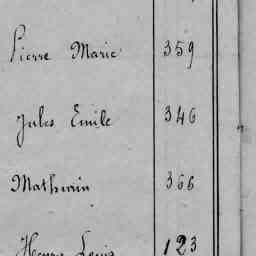 Pierre Marie 359
Jules Emile 346
Mathurin 366
Henri Louis 123